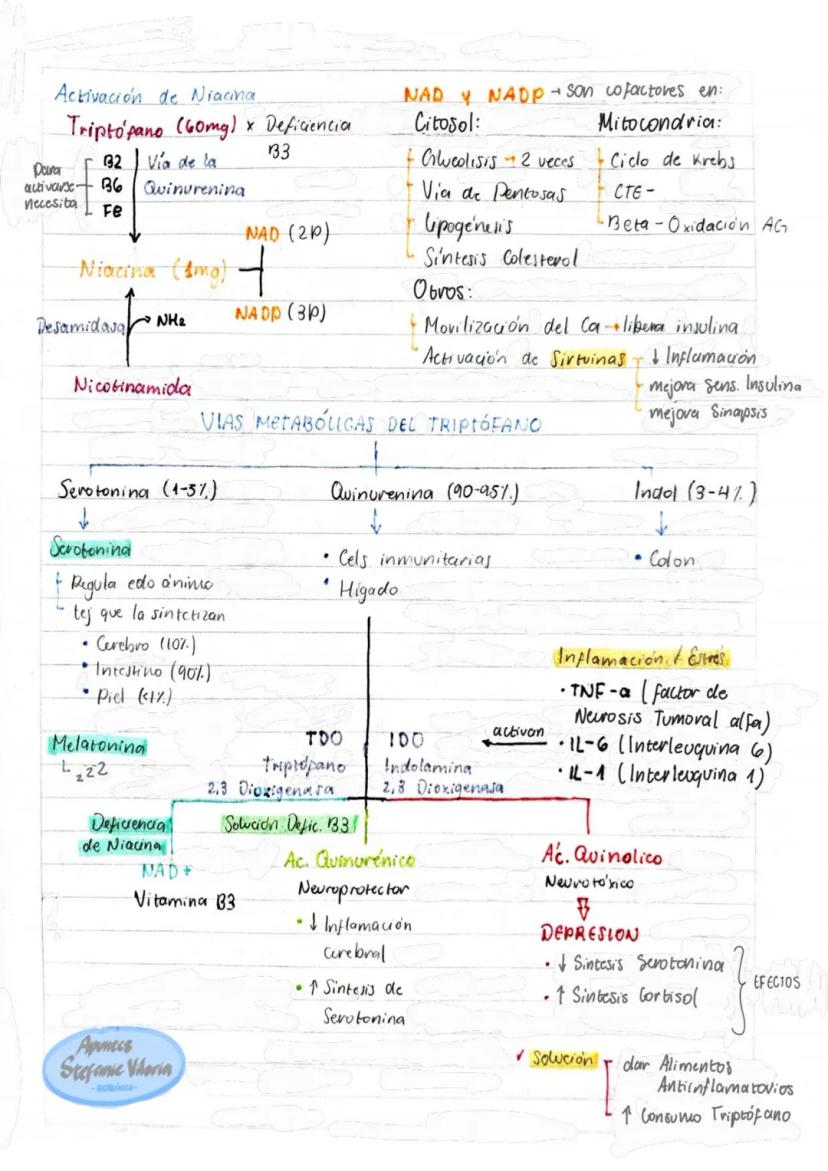 Activación de Niacina
Triptófano (60mg) x Deficiencia
B3
Para
activarse
necesita
B2
B6
Fe
Vía de la
Quinurenina
NAD (2P)
Niacina (1mg)
NADP (3P)
Desamidasa
NH2
Nicotinamida
NAD y NADP → son cofactores en:
Citosol:
Glucolisis → 2 veces
Vía de Pentosas
Lipogénesis
Síntesis Colesterol
Mitocondria:
Ciclo de Krebs
CTE-
Beta-Oxidación AG
Otros:
Movilización del Ca → libera insulina
Activación de Sirtuinas
↓ Inflamación
mejora Sens. Insulina
mejora Sinapsis
VIAS METABÓLICAS DEL TRIPTÓFANO
Serotonina (1-5%)
Quinurenina (90-95%)
Indol (3-4%)
Serotonina
Regula edo ánimo
tej que la sintetizan
• Cerebro (10%)
• Intestino (90%)
• Piel (<1%)
• Cels inmunitarias
• Hígado
• Colon
Melatonina
zzz
Inflamación / Estrés
• TNF-α (factor de
Necrosis Tumoral alfa)
• IL-6 (Interleuquina 6)
• IL-1 (Interleuquina 1)
activan
TDO
Triptófano
2,3 Dioxigenasa
IDO
Indolamina
2,3 Dioxigenasa
Deficiencia
de Niacina
NAD+
Vitamina B3
Solución Defic. B3
Ac. Quinurénico
Neuroprotector
• ↓ Inflamación
cerebral
• ↑ Sintesis de
Serotonina
Ác. Quinolico
Neurotóxico
DEPRESION
• ↓ Sintesis Serotonina
• ↑ Sintesis Cortisol
EFECTOS
✓ Solución
dar Alimentos
Antiinflamatorios
↑ Consumo Triptófano
Apuntes
Stefanie Viloria
- BIOQUÍMICA -